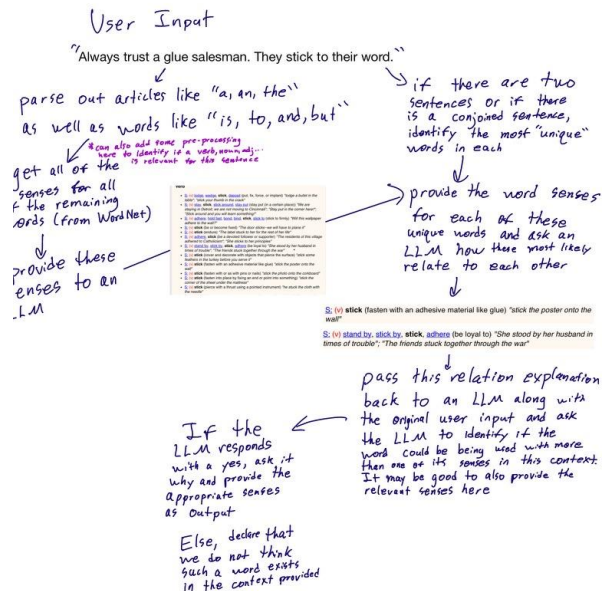 User Input
"Always trust a glue salesman. They stick to their word."
parse out articles like "a, an, the"
as well as words like "is, to, and, but"
*can also add some pre-processing
here to identify if a verb, noun, adj...
is relevant for this sentence
get all of the
senses for all
f the remaining
ords (from WordNet)
provide these
enses to an
LM
if there are two
sentences or if there
is a conjoined sentence,
identify the most "unique"
words in each
provide the word senses
for each of these
unique words and ask an
LLM how these most likely
relate to each other
S: (v) stick (fasten with an adhesive material like glue) "stick the poster onto the
wall"
S: (v) stand by, stick by, stick, adhere (be loyal to) "She stood by her husband in
times of trouble"; "The friends stuck together through the war"
pass this relation explanation
back to an LLM along with
the original user input and ask
the LLM to identify if the
word could be being used with more
than one of its senses in this context.
It may be good to also provide the
relevant senses here
If the
LLM responds
with a yes, ask it
why and provide the
appropriate senses
as output
Else, declare that
we do not think
such a word exists
in the context provided